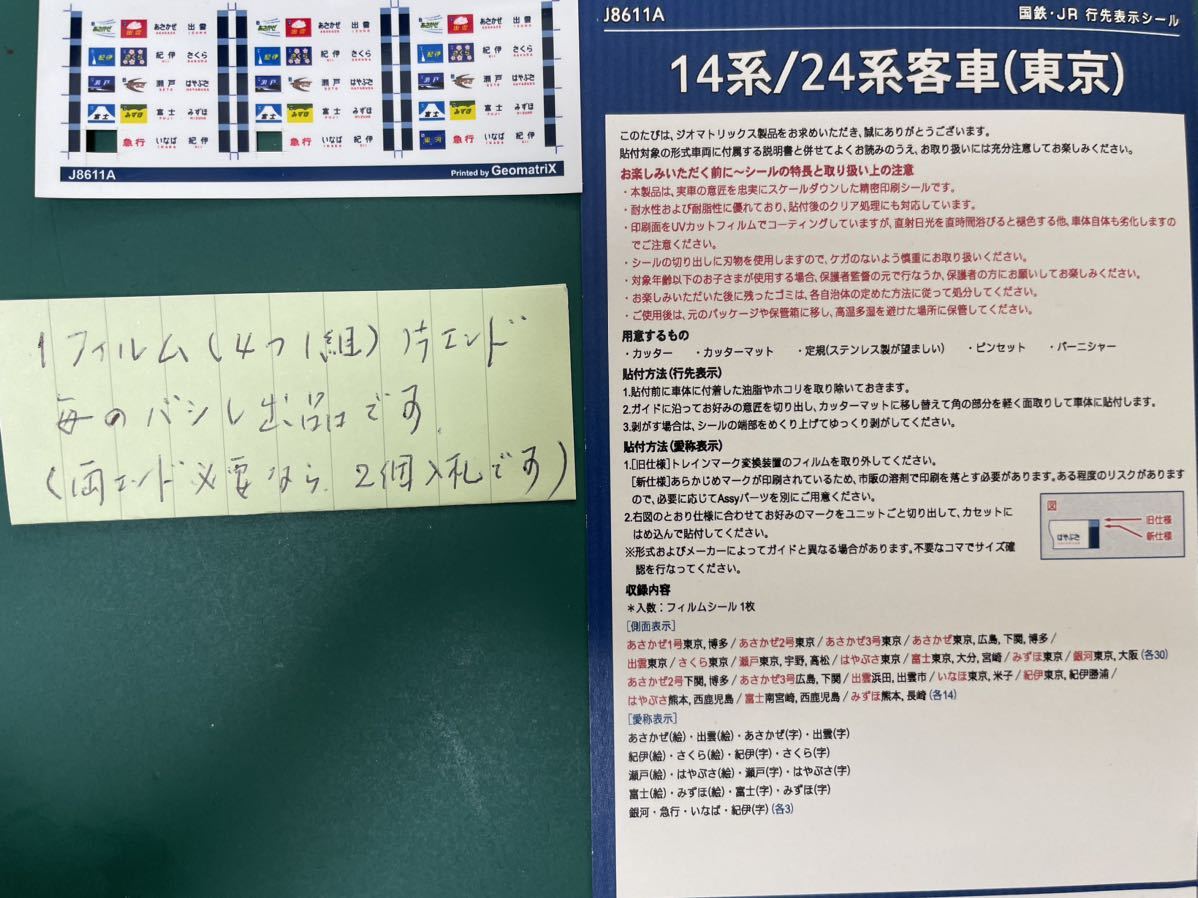 あさかぜ 出雲 あさかぜ 出雲 あさかぜ 出雲
紀伊 さくら 紀伊 さくら 紀伊 さくら
瀬戸 はやぶさ 瀬戸 はやぶさ 瀬戸 はやぶさ
富士 みずほ 富士 みずほ 富士 みずほ 富士 みずほ 富士 みずほ 富士 みずほ
急行 いなば 紀伊 急行 いなば 紀伊 銀河 急行 いなば 紀伊
J8611A Printed by GeomatriX
1フィルム(4つ1組)片エンド
毎のバラし出品です.
(両エンド必要なら2個入札です)
J8611A 国鉄・JR 行先表示シール
14系/24系客車(東京)
このたびは、ジオマトリックス製品をお求めいただき、誠にありがとうございます。
貼付対象の形式車両に付属する説明書と併せてよくお読みのうえ、お取り扱いには充分注意してお楽しみください。
お楽しみいただく前に～シールの特長と取り扱い上の注意
・本製品は、実車の意匠を忠実にスケールダウンした精密印刷シールです。
・耐水性および耐脂性に優れており、貼付後のクリア処理にも対応しています。
・印刷面をUVカットフィルムでコーティングしていますが、直射日光を直時間浴びると褪色する他、車体自体も劣化しますの
でご注意ください。
・シールの切り出しに刃物を使用しますので、ケガのないよう慎重にお取り扱いください。
・対象年齢以下のお子さまが使用する場合、保護者監督の元で行なうか、保護者の方にお願いしてお楽しみください。
・お楽しみいただいた後に残ったゴミは、各自治体の定めた方法に従って処分してください。
・ご使用後は、元のパッケージや保管箱に移し、高温多湿を避けた場所に保管してください。
用意するもの
・カッター ・カッターマット ・定規(ステンレス製が望ましい) ・ピンセット ・バーニシャー
貼付方法(行先表示)
1.貼付前に車体に付着した油脂やホコリを取り除いておきます。
2.ガイドに沿ってお好みの意匠を切り出し、カッターマットに移し替えて角の部分を軽く面取りして車体に貼付します。
3.剥がす場合は、シールの端部をめくり上げてゆっくり剥がしてください。
貼付方法(愛称表示)
1.[旧仕様]トレインマーク変換装置のフィルムを取り外してください。
[新仕様]あらかじめマークが印刷されているため、市販の溶剤で印刷を落とす必要があります。ある程度のリスクがあります
ので、必要に応じてAssyパーツを別にご用意ください。
2.右図のとおり仕様に合わせてお好みのマークをユニットごと切り出して、カセットに
はめ込んで貼付してください。
※形式およびメーカーによってガイドと異なる場合があります。不要なコマでサイズ確
認を行なってください。
図
旧仕様
はやぶさ
新仕様
収録内容
＊入数：フィルムシール1枚
[側面表示]
あさかぜ1号東京, 博多 / あさかぜ2号東京 / あさかぜ3号東京 / あさかぜ東京, 広島, 下関, 博多 /
出雲東京 / さくら東京 / 瀬戸東京, 宇野, 高松 / はやぶさ東京 / 富士東京, 大分, 宮崎 / みずほ東京 / 銀河東京, 大阪 (各30)
あさかぜ2号下関, 博多 / あさかぜ3号広島, 下関 / 出雲浜田, 出雲市 / いなば東京, 米子 / 紀伊東京, 紀伊勝浦 /
はやぶさ熊本, 西鹿児島 / 富士南宮崎, 西鹿児島 / みずほ熊本, 長崎 (各14)
[愛称表示]
あさかぜ(絵)・出雲(絵)・あさかぜ(字)・出雲(字)
紀伊(絵)・さくら(絵)・紀伊(字)・さくら(字)
瀬戸(絵)・はやぶさ(絵)・瀬戸(字)・はやぶさ(字)
富士(絵)・みずほ(絵)・富士(字)・みずほ(字)
銀河・急行・いなば・紀伊(字) (各3)